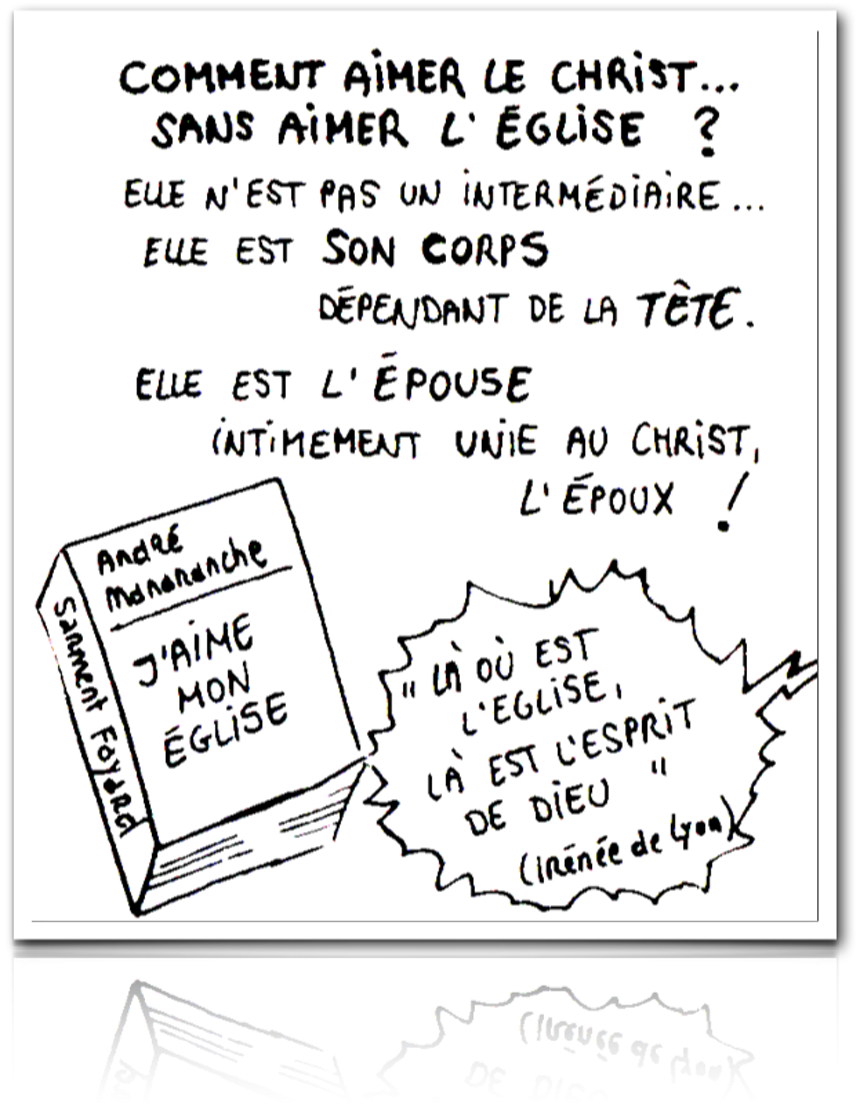 COMMENT AIMER LE CHRIST...
SANS AIMER L'ÉGLISE ?
ELLE N'EST PAS UN INTERMÉDIAIRE...
ELLE EST SON CORPS
DÉPENDANT DE LA TÊTE.
ELLE EST L'ÉPOUSE
INTIMEMENT UNIE AU CHRIST,
L'ÉPOUX !
André
Manaranche
J'AIME
MON
ÉGLISE
Sarment Fayard
"LÀ OÙ EST
L'EGLISE,
LÀ EST L'ESPRIT
DE DIEU"
(Irénée de Lyon)